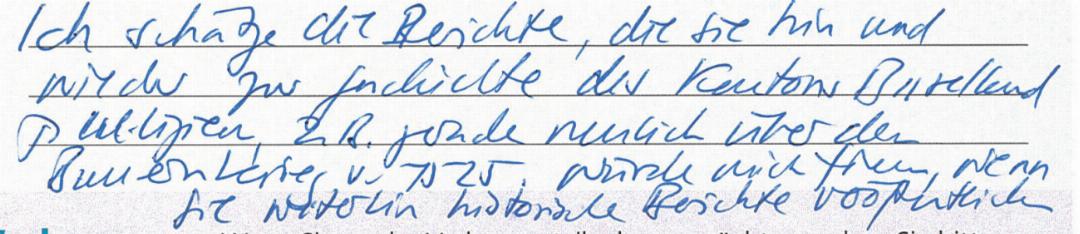 Ich schätze die Berichte, die sie hin und
wieder zur Geschichte des Kantons Baselland
publizieren, z.B. gerade neulich über den
Bauernkrieg v. 1525. würde mich freuen, wenn
sie weiterhin historische Berichte veröffentlichen